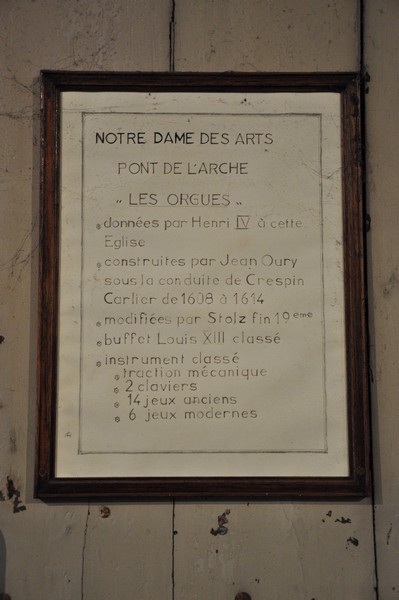 NOTRE DAME DES ARTS
PONT DE L'ARCHE
„ LES ORGUES „
données par Henri IV à cette
Eglise
construites par Jean Oury
sous la conduite de Crespin
Carlier de 1608 à 1614
modifiées par Stolz fin 19ème
buffet Louis XIII classé
instrument classé
traction mécanique
2 claviers
14 jeux anciens
6 jeux modernes